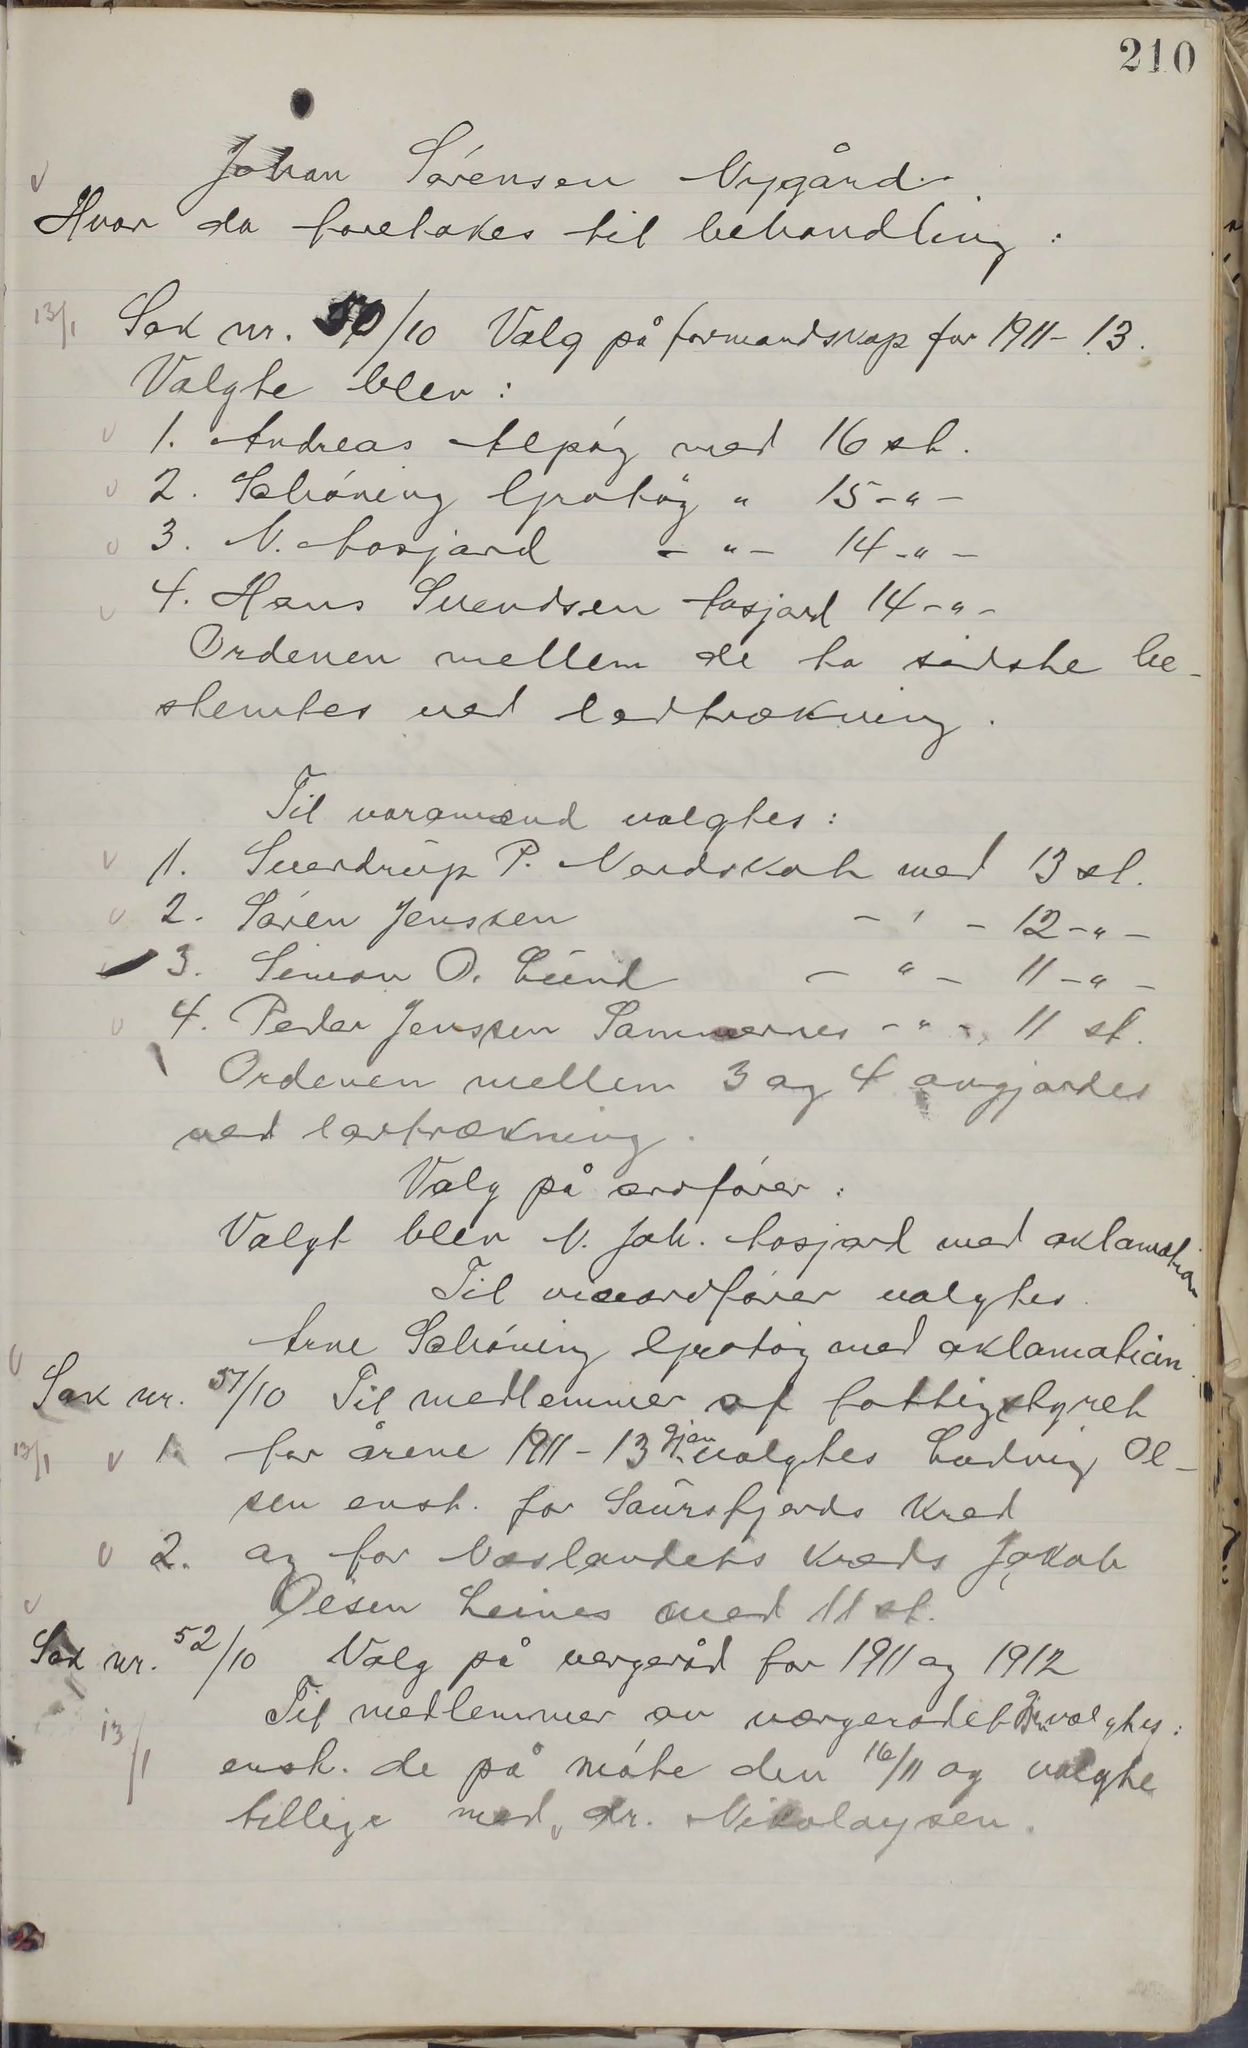 210
Johan Sörensen Nygård.
Hvor da foretokes til behandling:
13/1 Sak nr. 50/10 Valg på formandskap for 1911-13.
Valgte blev:
1. Andreas Alpöy med 16 st.
2. Schöning Grötöy " 15 -"-
3. N. Aasjord -"- 14 -"-
4. Hans Svendsen Aasjord 14 -"-
Ordenen mellem de to sidste be-
stemtes ved lodtrækning.
Til varamænd valgtes:
1. Sverdrup P. Nordskot med 13 st.
2. Sören Jenssen -"- 12 -"-
3. Simon O. Lund -"- 11 -"-
4. Peder Jenssen Sommernes -"- 11 st.
Ordenen mellem 3 og 4 avgjordes
ved lodtrækning.
Valg på ordförer:
Valgt blev N. Joh. Aasjord med aklamation
Til viceordförer valgtes
Arne Schöning Grötöy med aklamation.
Sak nr. 51/10 Til medlemmer af fattigstyret
13/1 1. for årene 1911-13 gjen valgtes Ludvig Ol-
sen enst. for Saursfjords kred
2. og for NesLandets kreds Jakob
Olsen Leines med 11 st.
Sak nr. 52/10 Valg på vergeråd for 1911 og 1912
Til medlemmer av vergerådet gjenvalgtes:
13/1 enst. de på möte den 16/11 09 valgte
tillige med dr. Nikolaysen.